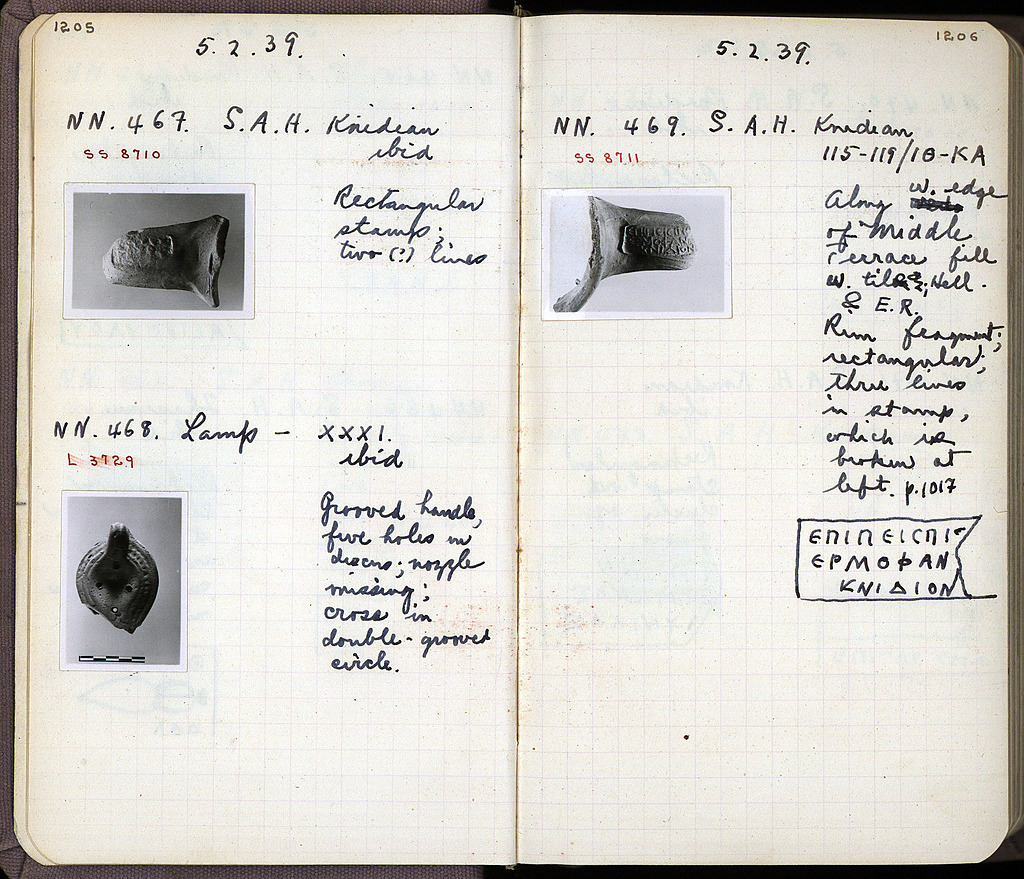 1205
5.2.39.
NN. 467. S.A.H. Knidian
SS 8710
ibid
Rectangular
stamp;
two (?) lines
NN. 468. Lamp - XXXI.
L 3729
ibid
Grooved handle,
five holes in
discus; nozzle
missing;
cross in
double-grooved
circle.
1206
5.2.39.
NN. 469. S.A.H. Knidian
SS 8711
115-119/18-KA
Along w. edge
of Middle
Terrace fill
w. tiles; Hell.
& E.R.
Rim fragment;
rectangular;
three lines
in stamp,
which is
broken at
left. p.1017
ΕΠΙΠΕΙϹΠΙ
ΕΡΜΟΦΑΝ
ΚΝΙΔΙΟΝ